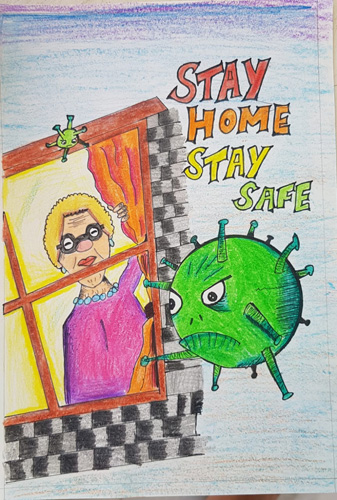 STAY
HOME
STAY
SAFE